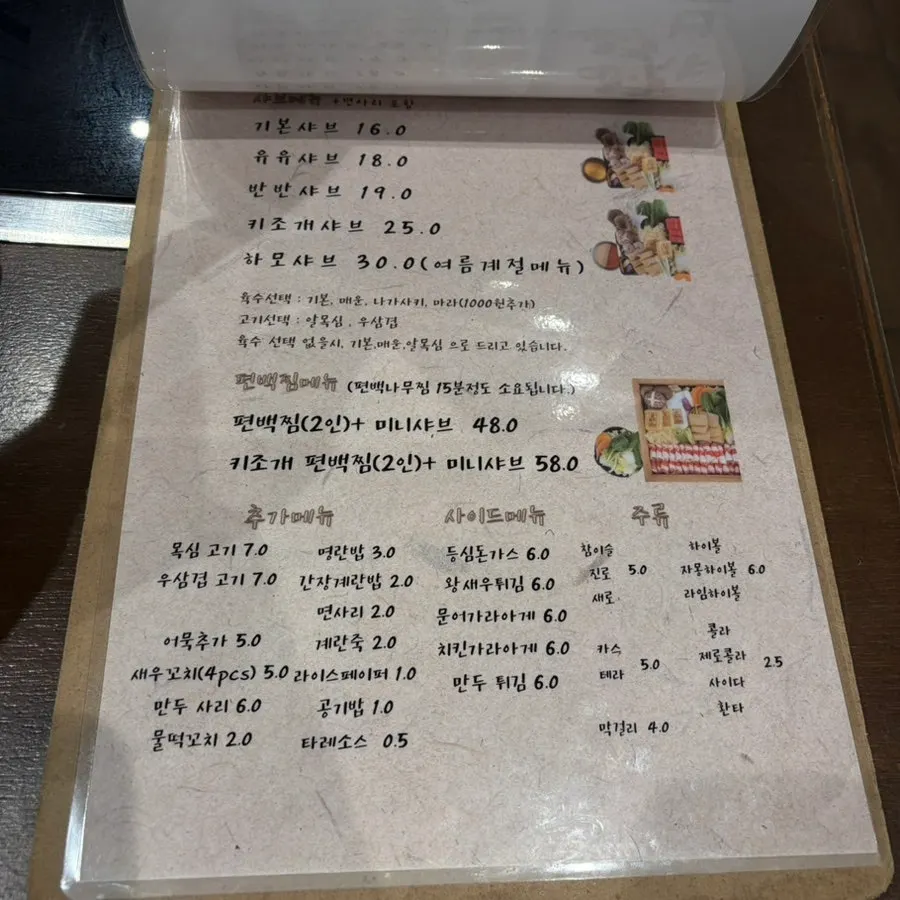 샤브메뉴 +면사리 포함
기본샤브 16.0
유유샤브 18.0
반반샤브 19.0
키조개샤브 25.0
하모샤브 30.0(여름계절메뉴)
육수선택 : 기본, 매운, 나가사키, 마라(1000원추가)
고기선택 : 알목심, 우삼겹
육수 선택 없을시, 기본,매운,알목심 으로 드리고 있습니다.
편백찜메뉴 (편백나무찜 15분정도 소요됩니다.)
편백찜(2인)+ 미니샤브 48.0
키조개 편백찜(2인)+ 미니샤브 58.0
추가메뉴
목심 고기 7.0
우삼겹 고기 7.0
어묵추가 5.0
새우꼬치(4pcs) 5.0
만두 사리 6.0
물떡꼬치 2.0
명란밥 3.0
간장계란밥 2.0
면사리 2.0
계란죽 2.0
라이스페이퍼 1.0
공기밥 1.0
타레소스 0.5
사이드메뉴
등심돈가스 6.0
왕새우튀김 6.0
문어가라아게 6.0
치킨가라아게 6.0
만두 튀김 6.0
주류
참이슬
진로 5.0
새로
카스
테라 5.0
막걸리 4.0
하이볼
자몽하이볼 6.0
라임하이볼
콜라
제로콜라 2.5
사이다
환타